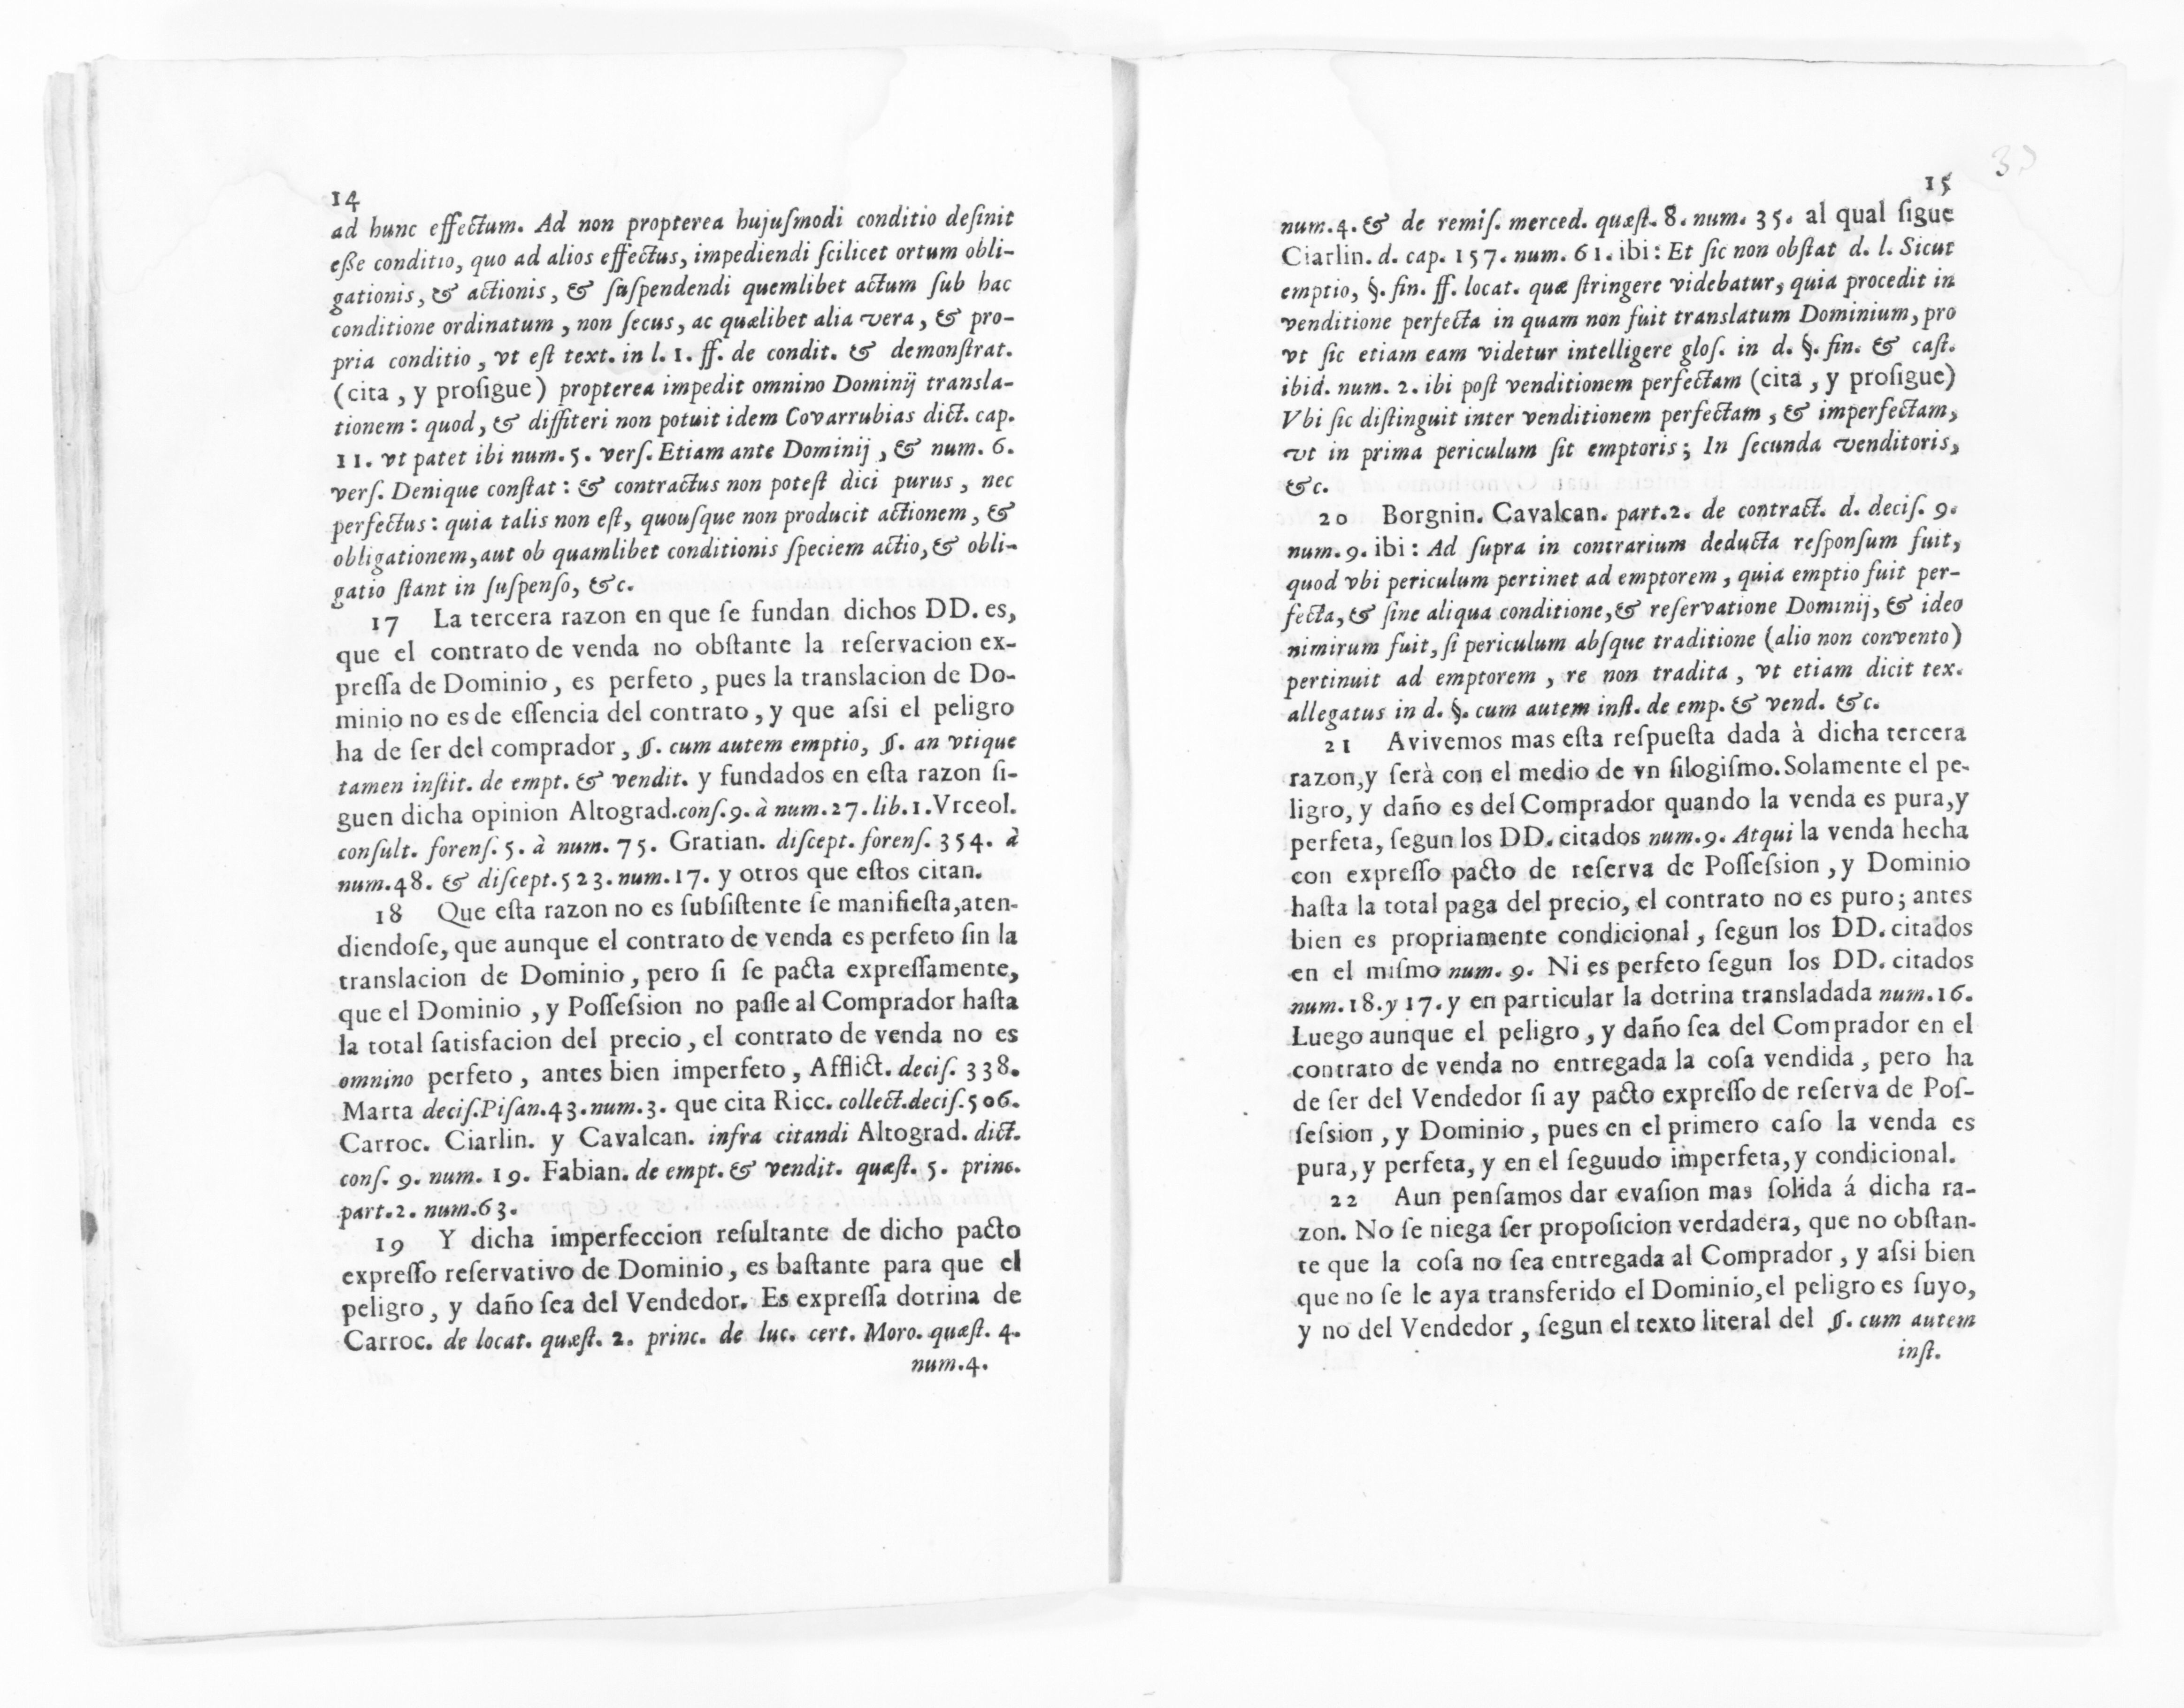 14
ad hunc effectum. Ad non propterea hujuſmodi conditio deſinit
eſſe conditio, quo ad alios effectus, impediendi ſcilicet ortum obli-
gationis, & actionis, & ſuſpendendi quemlibet actum ſub hac
conditione ordinatum, non ſecus, ac quælibet alia vera, & pro-
pria conditio, vt eſt text. in l. 1. ff. de condit. & demonſtrat.
(cita, y proſigue) propterea impedit omnino Dominij transla-
tionem: quod, & diffiteri non potuit idem Covarrubias dict. cap.
11. vt patet ibi num. 5. verſ. Etiam ante Dominij, & num. 6.
verſ. Denique conſtat: & contractus non poteſt dici purus, nec
perfectus: quia talis non eſt, quouſque non producit actionem, &
obligationem, aut ob quamlibet conditionis ſpeciem actio, & obli-
gatio ſtant in ſuſpenſo, &c.
17 La tercera razon en que ſe fundan dichos DD. es,
que el contrato de venda no obſtante la reſervacion ex-
preſſa de Dominio, es perfeto, pues la translacion de Do-
minio no es de eſſencia del contrato, y que aſsi el peligro
ha de ſer del comprador, §. cum autem emptio, §. an vtique
tamen inſtit. de empt. & vendit. y fundados en eſta razon ſi-
guen dicha opinion Altograd. conſ. 9. à num. 27. lib. 1. Vrceol.
conſult. forenſ. 5. à num. 75. Gratian. diſcept. forenſ. 354. à
num. 48. & diſcept. 523. num. 17. y otros que eſtos citan.
18 Que eſta razon no es ſubſiſtente ſe manifieſta, aten-
diendoſe, que aunque el contrato de venda es perfeto ſin la
translacion de Dominio, pero ſi ſe pacta expreſſamente,
que el Dominio, y Poſſeſsion no paſſe al Comprador haſta
la total ſatisfacion del precio, el contrato de venda no es
omnino perfeto, antes bien imperfeto, Afflict. deciſ. 338.
Marta deciſ. Piſan. 43. num. 3. que cita Ricc. collect. deciſ. 506.
Carroc. Ciarlin. y Cavalcan. infra citandi Altograd. dict.
conſ. 9. num. 19. Fabian. de empt. & vendit. quæſt. 5. princ.
part. 2. num. 63.
19 Y dicha imperfeccion reſultante de dicho pacto
expreſſo reſervativo de Dominio, es baſtante para que el
peligro, y daño ſea del Vendedor. Es expreſſa dotrina de
Carroc. de locat. quæſt. 2. princ. de luc. cert. Moro. quæſt. 4.
num. 4.
15
num. 4. & de remiſ. merced. quæſt. 8. num. 35. al qual ſigue
Ciarlin. d. cap. 157. num. 61. ibi: Et ſic non obſtat d. l. Sicut
emptio, §. fin. ff. locat. quæ ſtringere videbatur, quia procedit in
venditione perfecta in quam non fuit translatum Dominium, pro
vt ſic etiam eam videtur intelligere gloſ. in d. §. fin. & caſt.
ibid. num. 2. ibi poſt venditionem perfectam (cita, y proſigue)
Vbi ſic diſtinguit inter venditionem perfectam, & imperfectam,
vt in prima periculum ſit emptoris; In ſecunda venditoris,
&c.
20 Borgnin. Cavalcan. part. 2. de contract. d. deciſ. 9.
num. 9. ibi: Ad ſupra in contrarium deducta reſponſum fuit,
quod vbi periculum pertinet ad emptorem, quia emptio fuit per-
fecta, & ſine aliqua conditione, & reſervatione Dominij, & ideo
nimirum fuit, ſi periculum abſque traditione (alio non convento)
pertinuit ad emptorem, re non tradita, vt etiam dicit tex.
allegatus in d. §. cum autem inſt. de emp. & vend. &c.
21 Avivemos mas eſta reſpueſta dada à dicha tercera
razon, y ſerà con el medio de vn ſilogiſmo. Solamente el pe-
ligro, y daño es del Comprador quando la venda es pura, y
perfeta, ſegun los DD. citados num. 9. Atqui la venda hecha
con expreſſo pacto de reſerva de Poſſeſsion, y Dominio
haſta la total paga del precio, el contrato no es puro; antes
bien es propriamente condicional, ſegun los DD. citados
en el miſmo num. 9. Ni es perfeto ſegun los DD. citados
num. 18. y 17. y en particular la dotrina transladada num. 16.
Luego aunque el peligro, y daño ſea del Comprador en el
contrato de venda no entregada la coſa vendida, pero ha
de ſer del Vendedor ſi ay pacto expreſſo de reſerva de Poſ-
ſeſsion, y Dominio, pues en el primero caſo la venda es
pura, y perfeta, y en el ſeguudo imperfeta, y condicional.
22 Aun penſamos dar evaſion mas ſolida á dicha ra-
zon. No ſe niega ſer propoſicion verdadera, que no obſtan-
te que la coſa no ſea entregada al Comprador, y aſsi bien
que no ſe le aya transferido el Dominio, el peligro es ſuyo,
y no del Vendedor, ſegun el texto literal del §. cum autem
inſt.